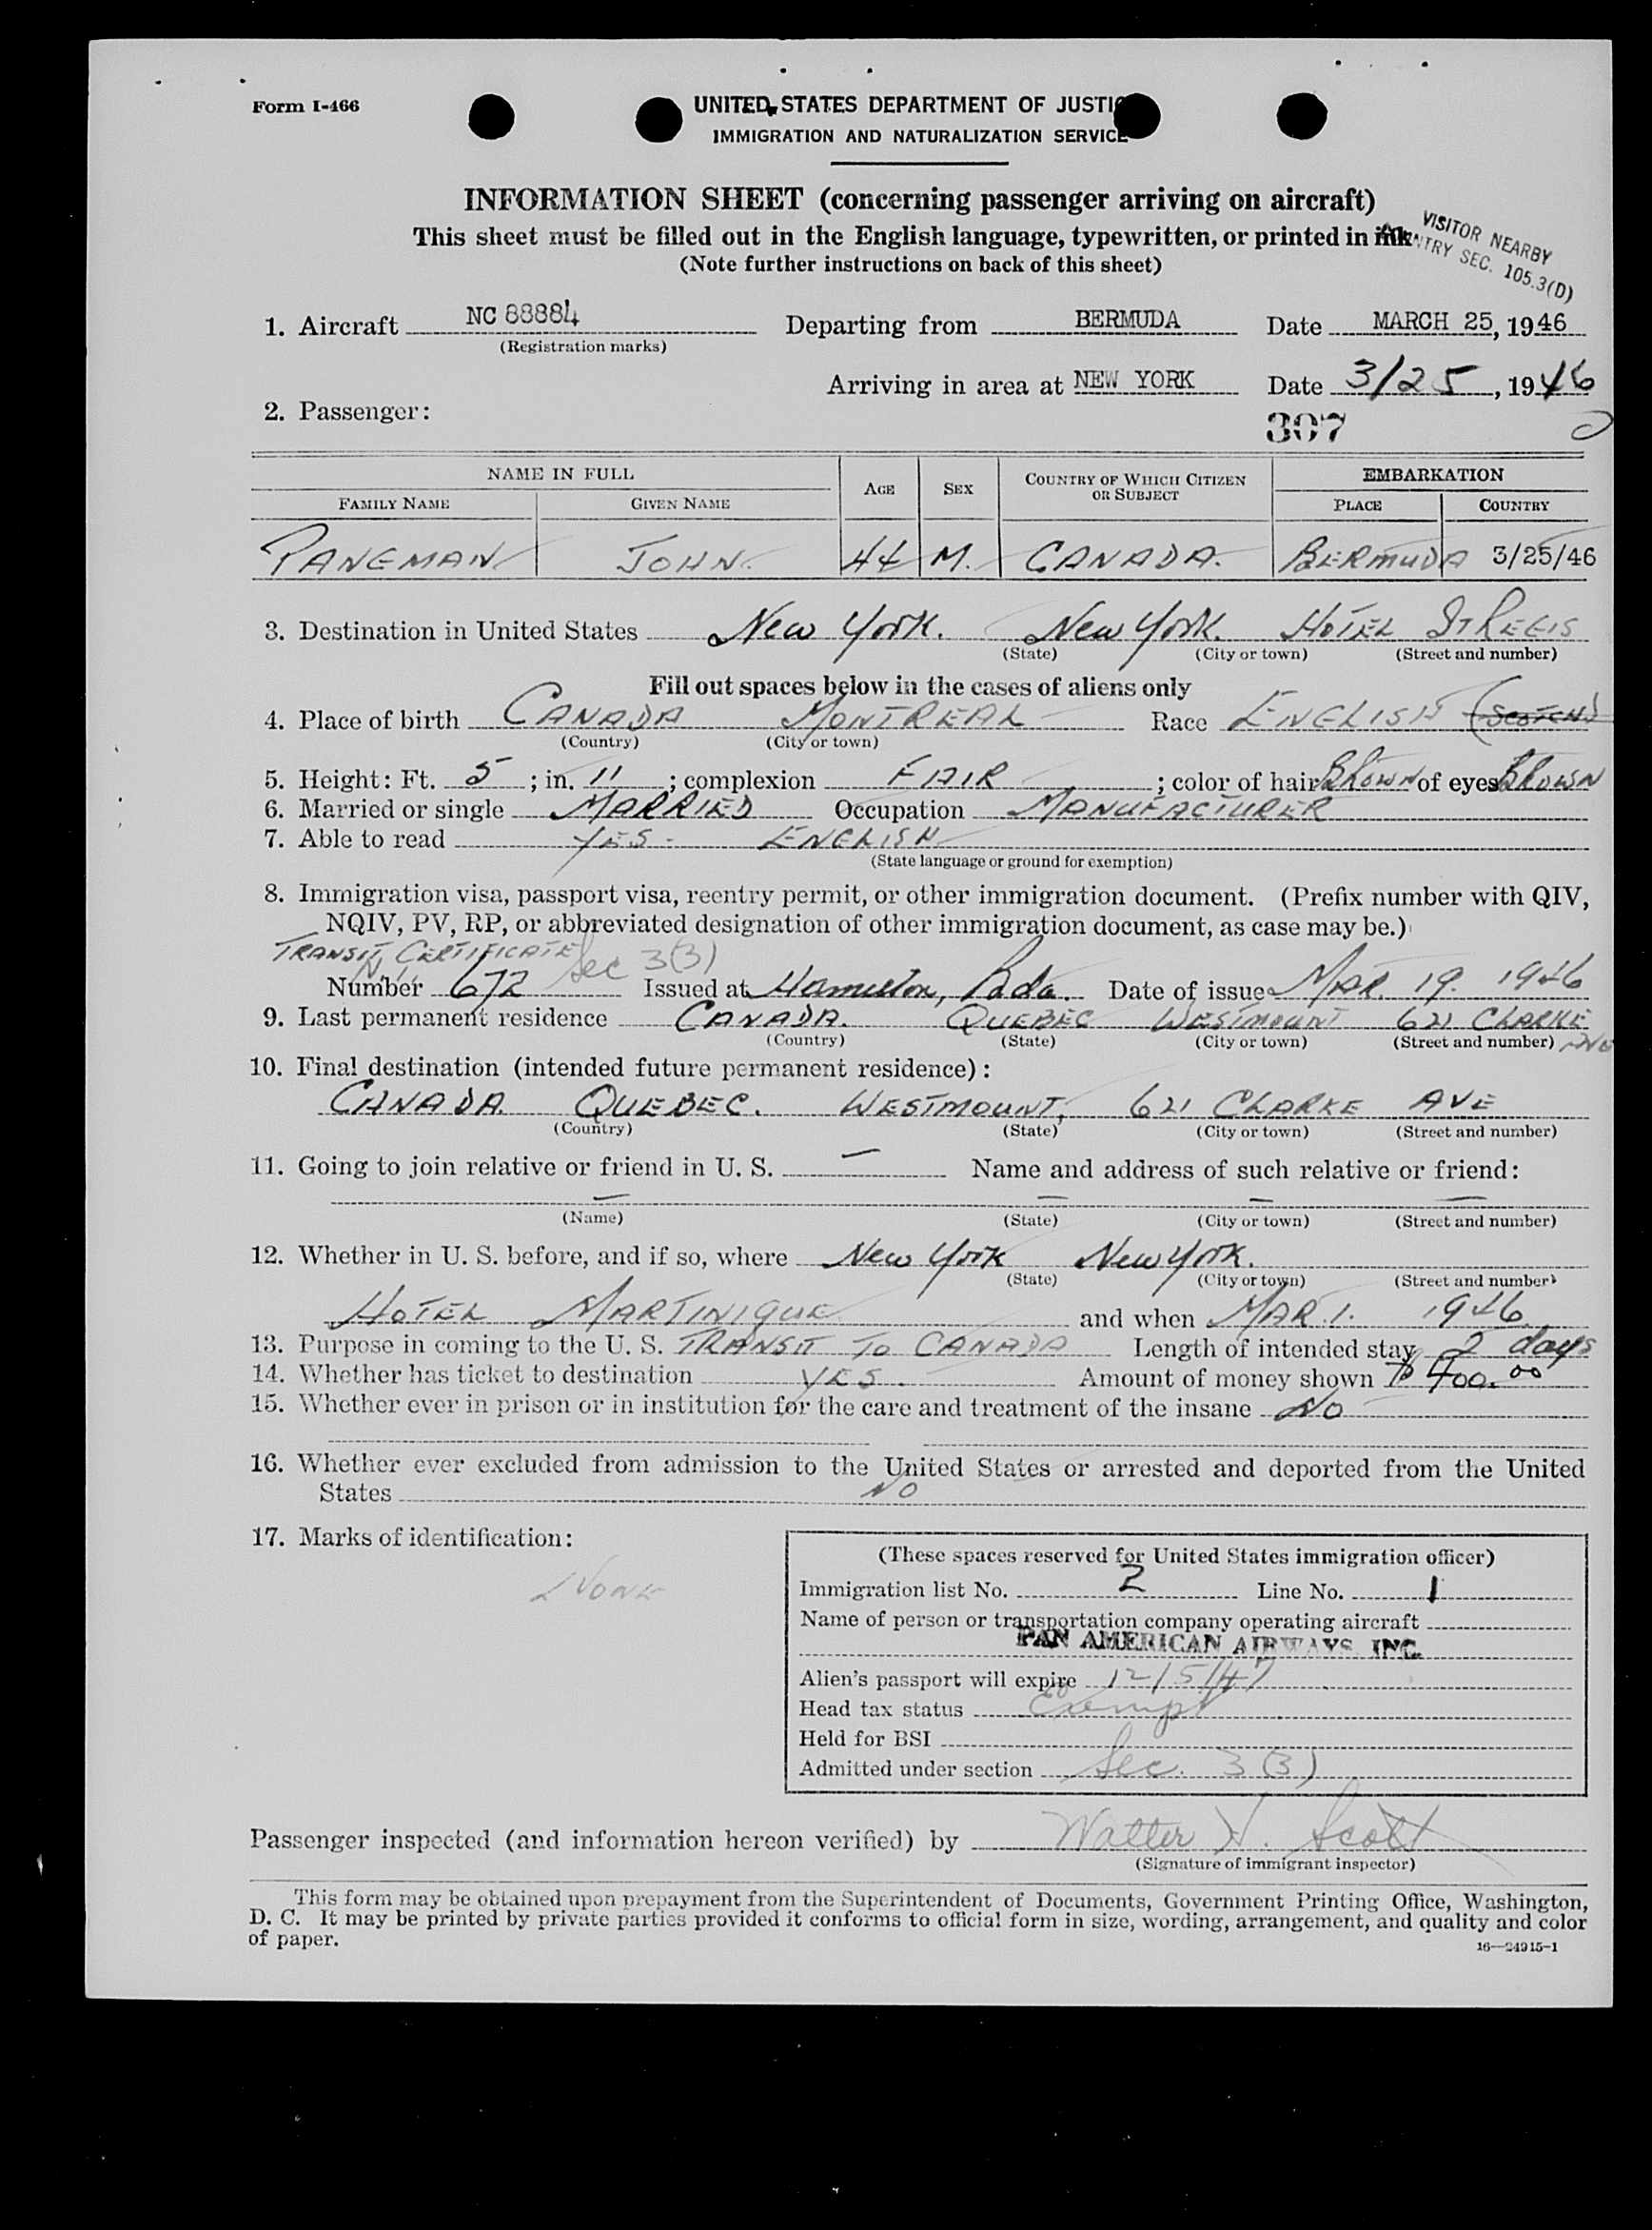 Form I-466
UNITED STATES DEPARTMENT OF JUSTIC
IMMIGRATION AND NATURALIZATION SERVICE
INFORMATION SHEET (concerning passenger arriving on aircraft)
This sheet must be filled out in the English language, typewritten, or printed in ink
(Note further instructions on back of this sheet)
VISITOR NEARBY
COUNTRY SEC. 105.3(D)
1. Aircraft NC 88884 Departing from BERMUDA Date MARCH 25, 1946
(Registration marks)
Arriving in area at NEW YORK Date 3/25, 1946
2. Passenger:
307
NAME IN FULL AGE SEX COUNTRY OF WHICH CITIZEN OR SUBJECT EMBARKATION
FAMILY NAME GIVEN NAME PLACE COUNTRY
PANGMAN JOHN. 44 M. CANADA. BERMUDA 3/25/46
3. Destination in United States New York. New York. HOTEL ST REGIS
(State) (City or town) (Street and number)
Fill out spaces below in the cases of aliens only
4. Place of birth CANADA MONTREAL Race ENGLISH (SCOTCH)
(Country) (City or town)
5. Height: Ft. 5 ; in. 11 ; complexion FAIR ; color of hair BROWN of eyes BROWN
6. Married or single MARRIED Occupation MANUFACTURER
7. Able to read YES - ENGLISH
(State language or ground for exemption)
8. Immigration visa, passport visa, reentry permit, or other immigration document. (Prefix number with QIV,
NQIV, PV, RP, or abbreviated designation of other immigration document, as case may be.)
TRANSIT CERTIFICATE Sec 3(3)
Number 672 Issued at Hamilton, Bda. Date of issue MAR. 19. 1946
9. Last permanent residence CANADA. QUEBEC WESTMOUNT 621 CLARKE AVE
(Country) (State) (City or town) (Street and number)
10. Final destination (intended future permanent residence):
CANADA. QUEBEC. WESTMOUNT, 621 CLARKE AVE
(Country) (State) (City or town) (Street and number)
11. Going to join relative or friend in U. S. — Name and address of such relative or friend:
— — — —
(Name) (State) (City or town) (Street and number)
12. Whether in U. S. before, and if so, where New York New York.
(State) (City or town) (Street and number)
HOTEL MARTINIQUE and when MAR. 1. 1946.
13. Purpose in coming to the U. S. TRANSIT TO CANADA Length of intended stay 2 days
14. Whether has ticket to destination YES. Amount of money shown $400.00
15. Whether ever in prison or in institution for the care and treatment of the insane No
16. Whether ever excluded from admission to the United States or arrested and deported from the United
States NO
17. Marks of identification:
NONE
(These spaces reserved for United States immigration officer)
Immigration list No. 2 Line No. 1
Name of person or transportation company operating aircraft
PAN AMERICAN AIRWAYS, INC.
Alien's passport will expire 12/5/47
Head tax status Exempt
Held for BSI
Admitted under section Sec. 3(3)
Passenger inspected (and information hereon verified) by Walter H. Scott
(Signature of immigrant inspector)
This form may be obtained upon prepayment from the Superintendent of Documents, Government Printing Office, Washington,
D. C. It may be printed by private parties provided it conforms to official form in size, wording, arrangement, and quality and color
of paper.
16—24915-1